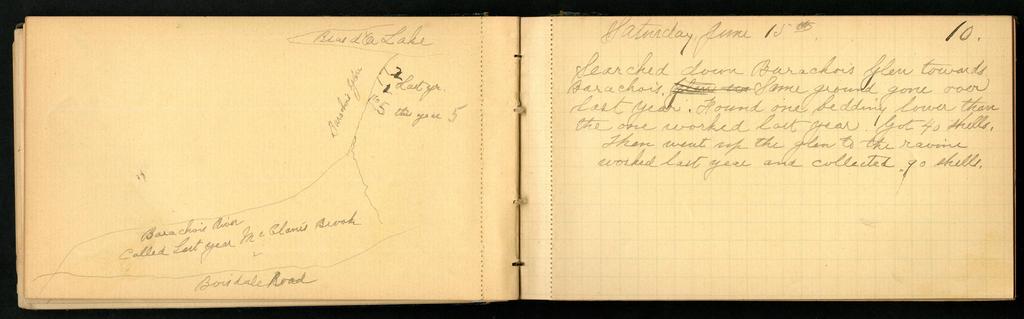 Bras d'Or Lake
Barachois Glen
2 Last yr.
1
No 5 this year 5
Barachois River
Called Last year Mc Clanis Brook
Boisdale Road
Saturday, June 15th. 10.
Searched down Barachois Glen towards
Barachois. Some ground gone over
last year. Found one bedding lower than
the one worked last year. Got 40 shells.
Then went up the glen to the ravine
worked last year and collected 90 shells.